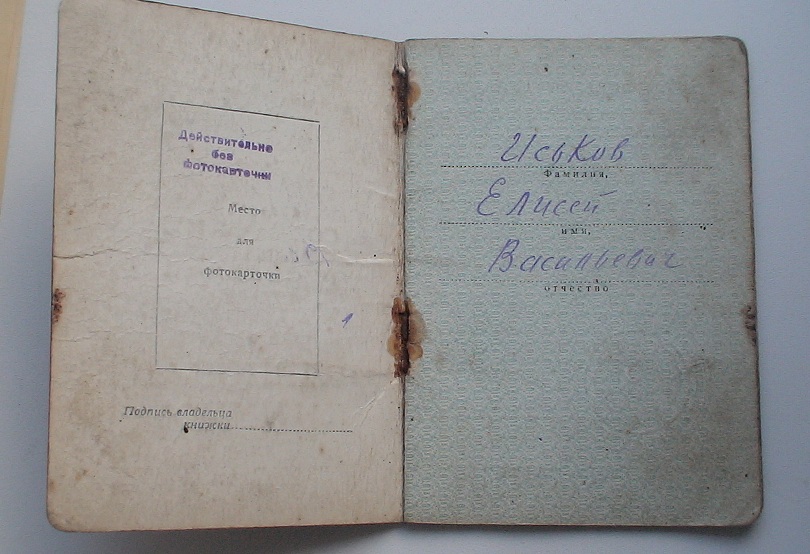 Действительно
без
фотокарточки
Место
для
фотокарточки
Подпись владельца
книжки
Иськов
Фамилия,
Елисей
имя,
Васильевич
отчество